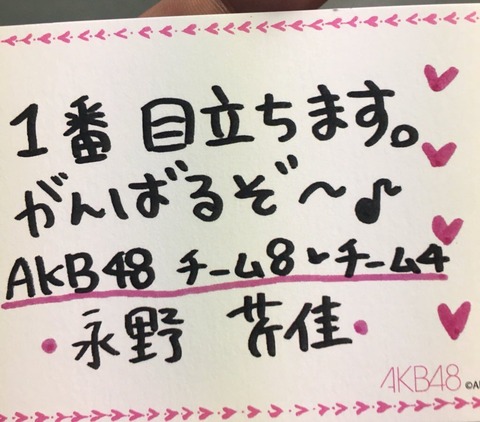 1番 目立ちます。
がんばるぞ〜♪
AKB48 チーム8 チーム4
・永野 芹佳・
AKB48 ©A